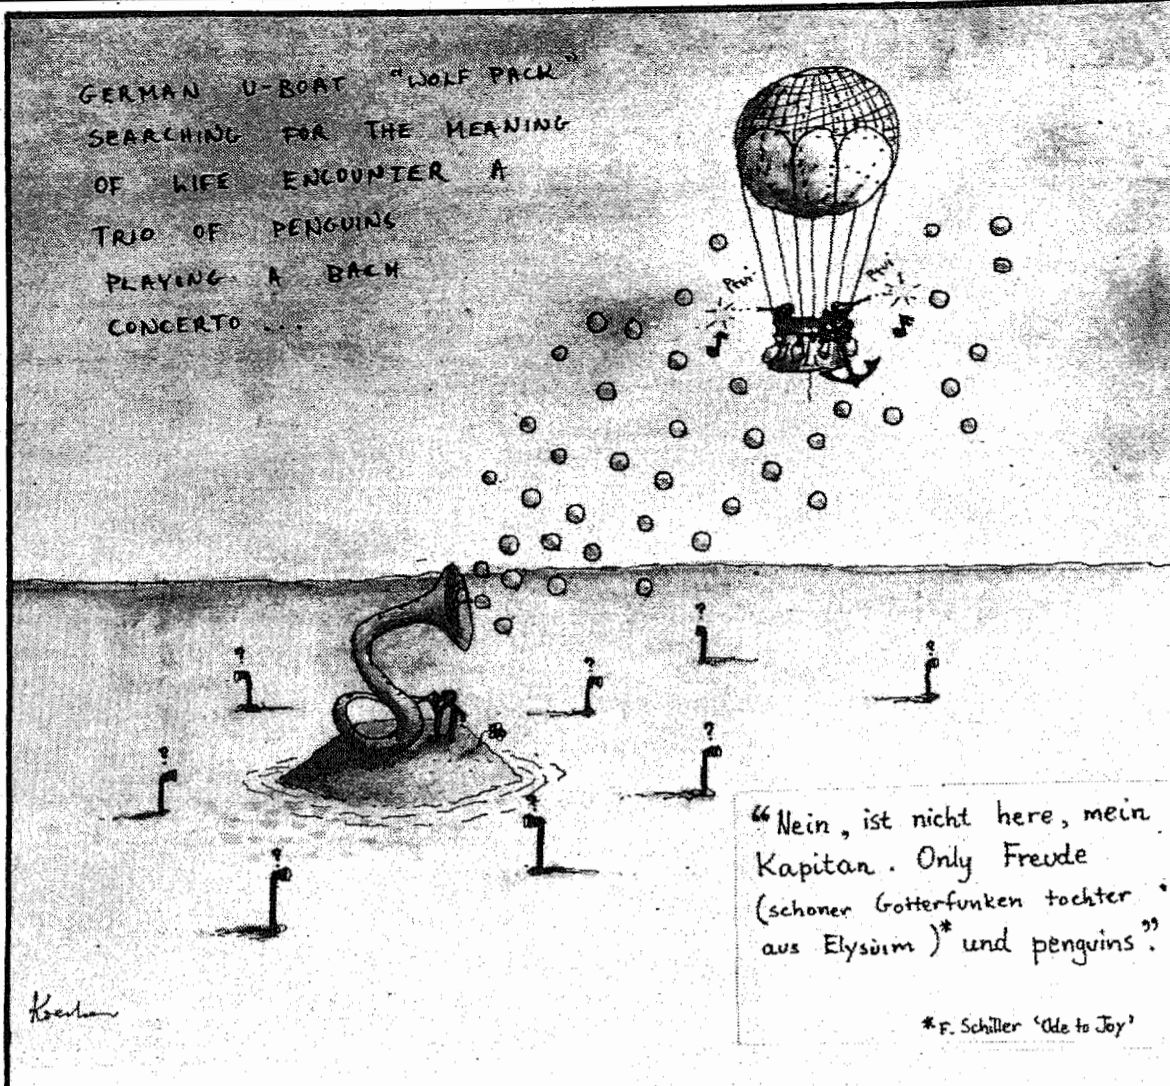 GERMAN U-BOAT "WOLF PACK"
SEARCHING FOR THE MEANING
OF LIFE ENCOUNTER A
TRIO OF PENGUINS
PLAYING A BACH
CONCERTO ...
Pew!
Pew!
?
?
?
?
?
?
?
?
"Nein, ist nicht here, mein
Kapitan. Only Freude
(schoner Gotterfunken tochter
aus Elysium)* und penguins".
*F. Schiller 'Ode to Joy'